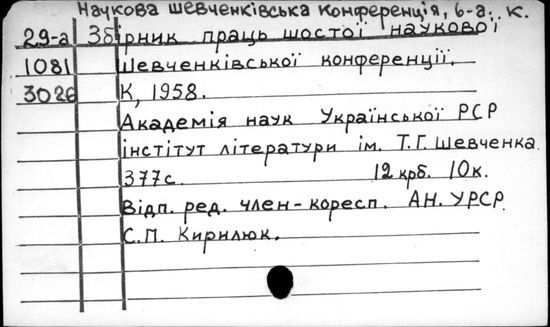 Наукова шевченківська конференція, 6-а. К.
29-а Збірник праць шостої наукової
1081 Шевченківської конференції.
3026 К, 1958.
Академія наук Української РСР
інститут літератури ім. Т.Г. Шевченка.
377с. 12 крб. 10к.
Відп. ред. член-кореcп. АН. УРСР.
С.П. Кирилюк.